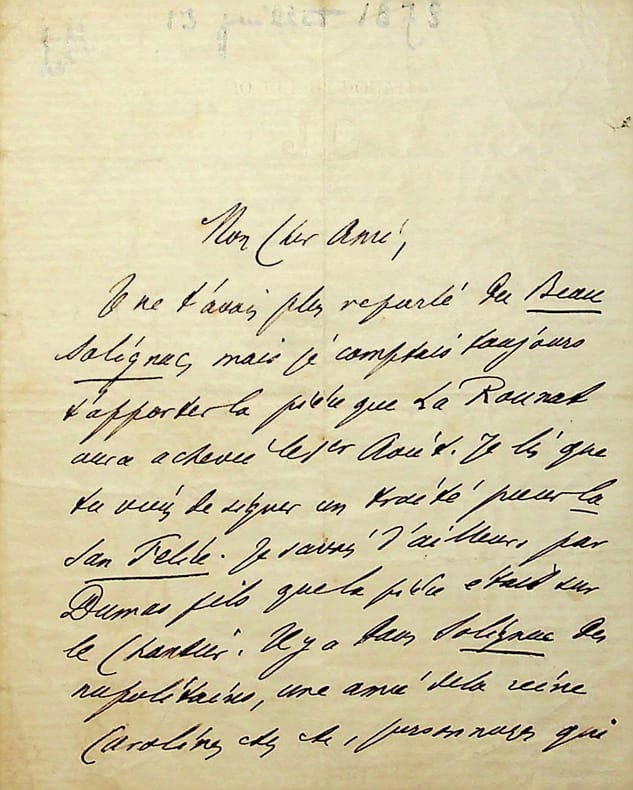 13 juillet 1878
Mon Cher Ami,
Je ne t'avais plus reparlé du Beau
Solignac, mais je comptais toujours
t'apporter la pièce que La Rounat
aura achevée le 1er Août. Je lis que
tu viens de signer un traité pour la
San Felice. Je savais d'ailleurs par
Dumas fils que la pièce était sur
le chantier. Il y a dans Solignac des
napolitains, une amie de la reine
Caroline, etc, personnages qui